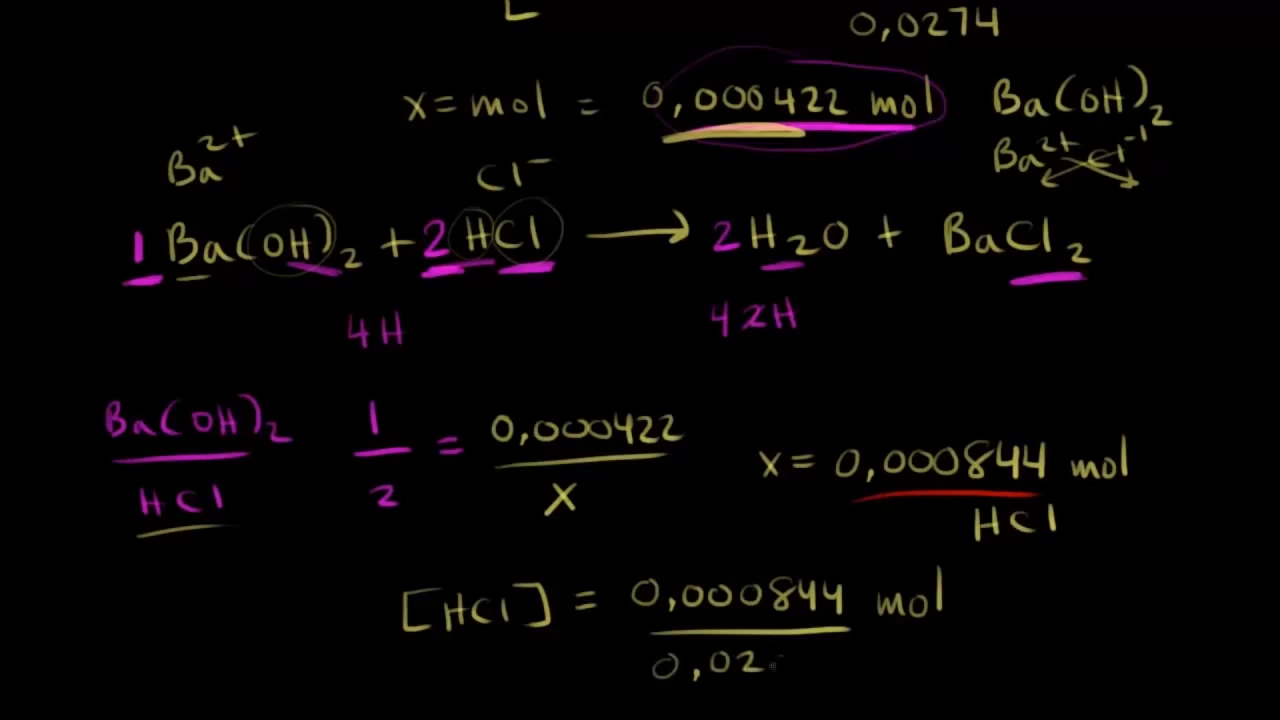 0,0274
x = mol = 0,000422 mol Ba(OH)₂
Ba²⁺ Cl⁻ Ba²⁺ Cl⁻¹
1 Ba(OH)₂ + 2 HCl → 2 H₂O + BaCl₂
4H 4 2H
Ba(OH)₂ 1 = 0,000422 x = 0,000844 mol
HCl 2 X HCl
[HCl] = 0,000844 mol
0,02